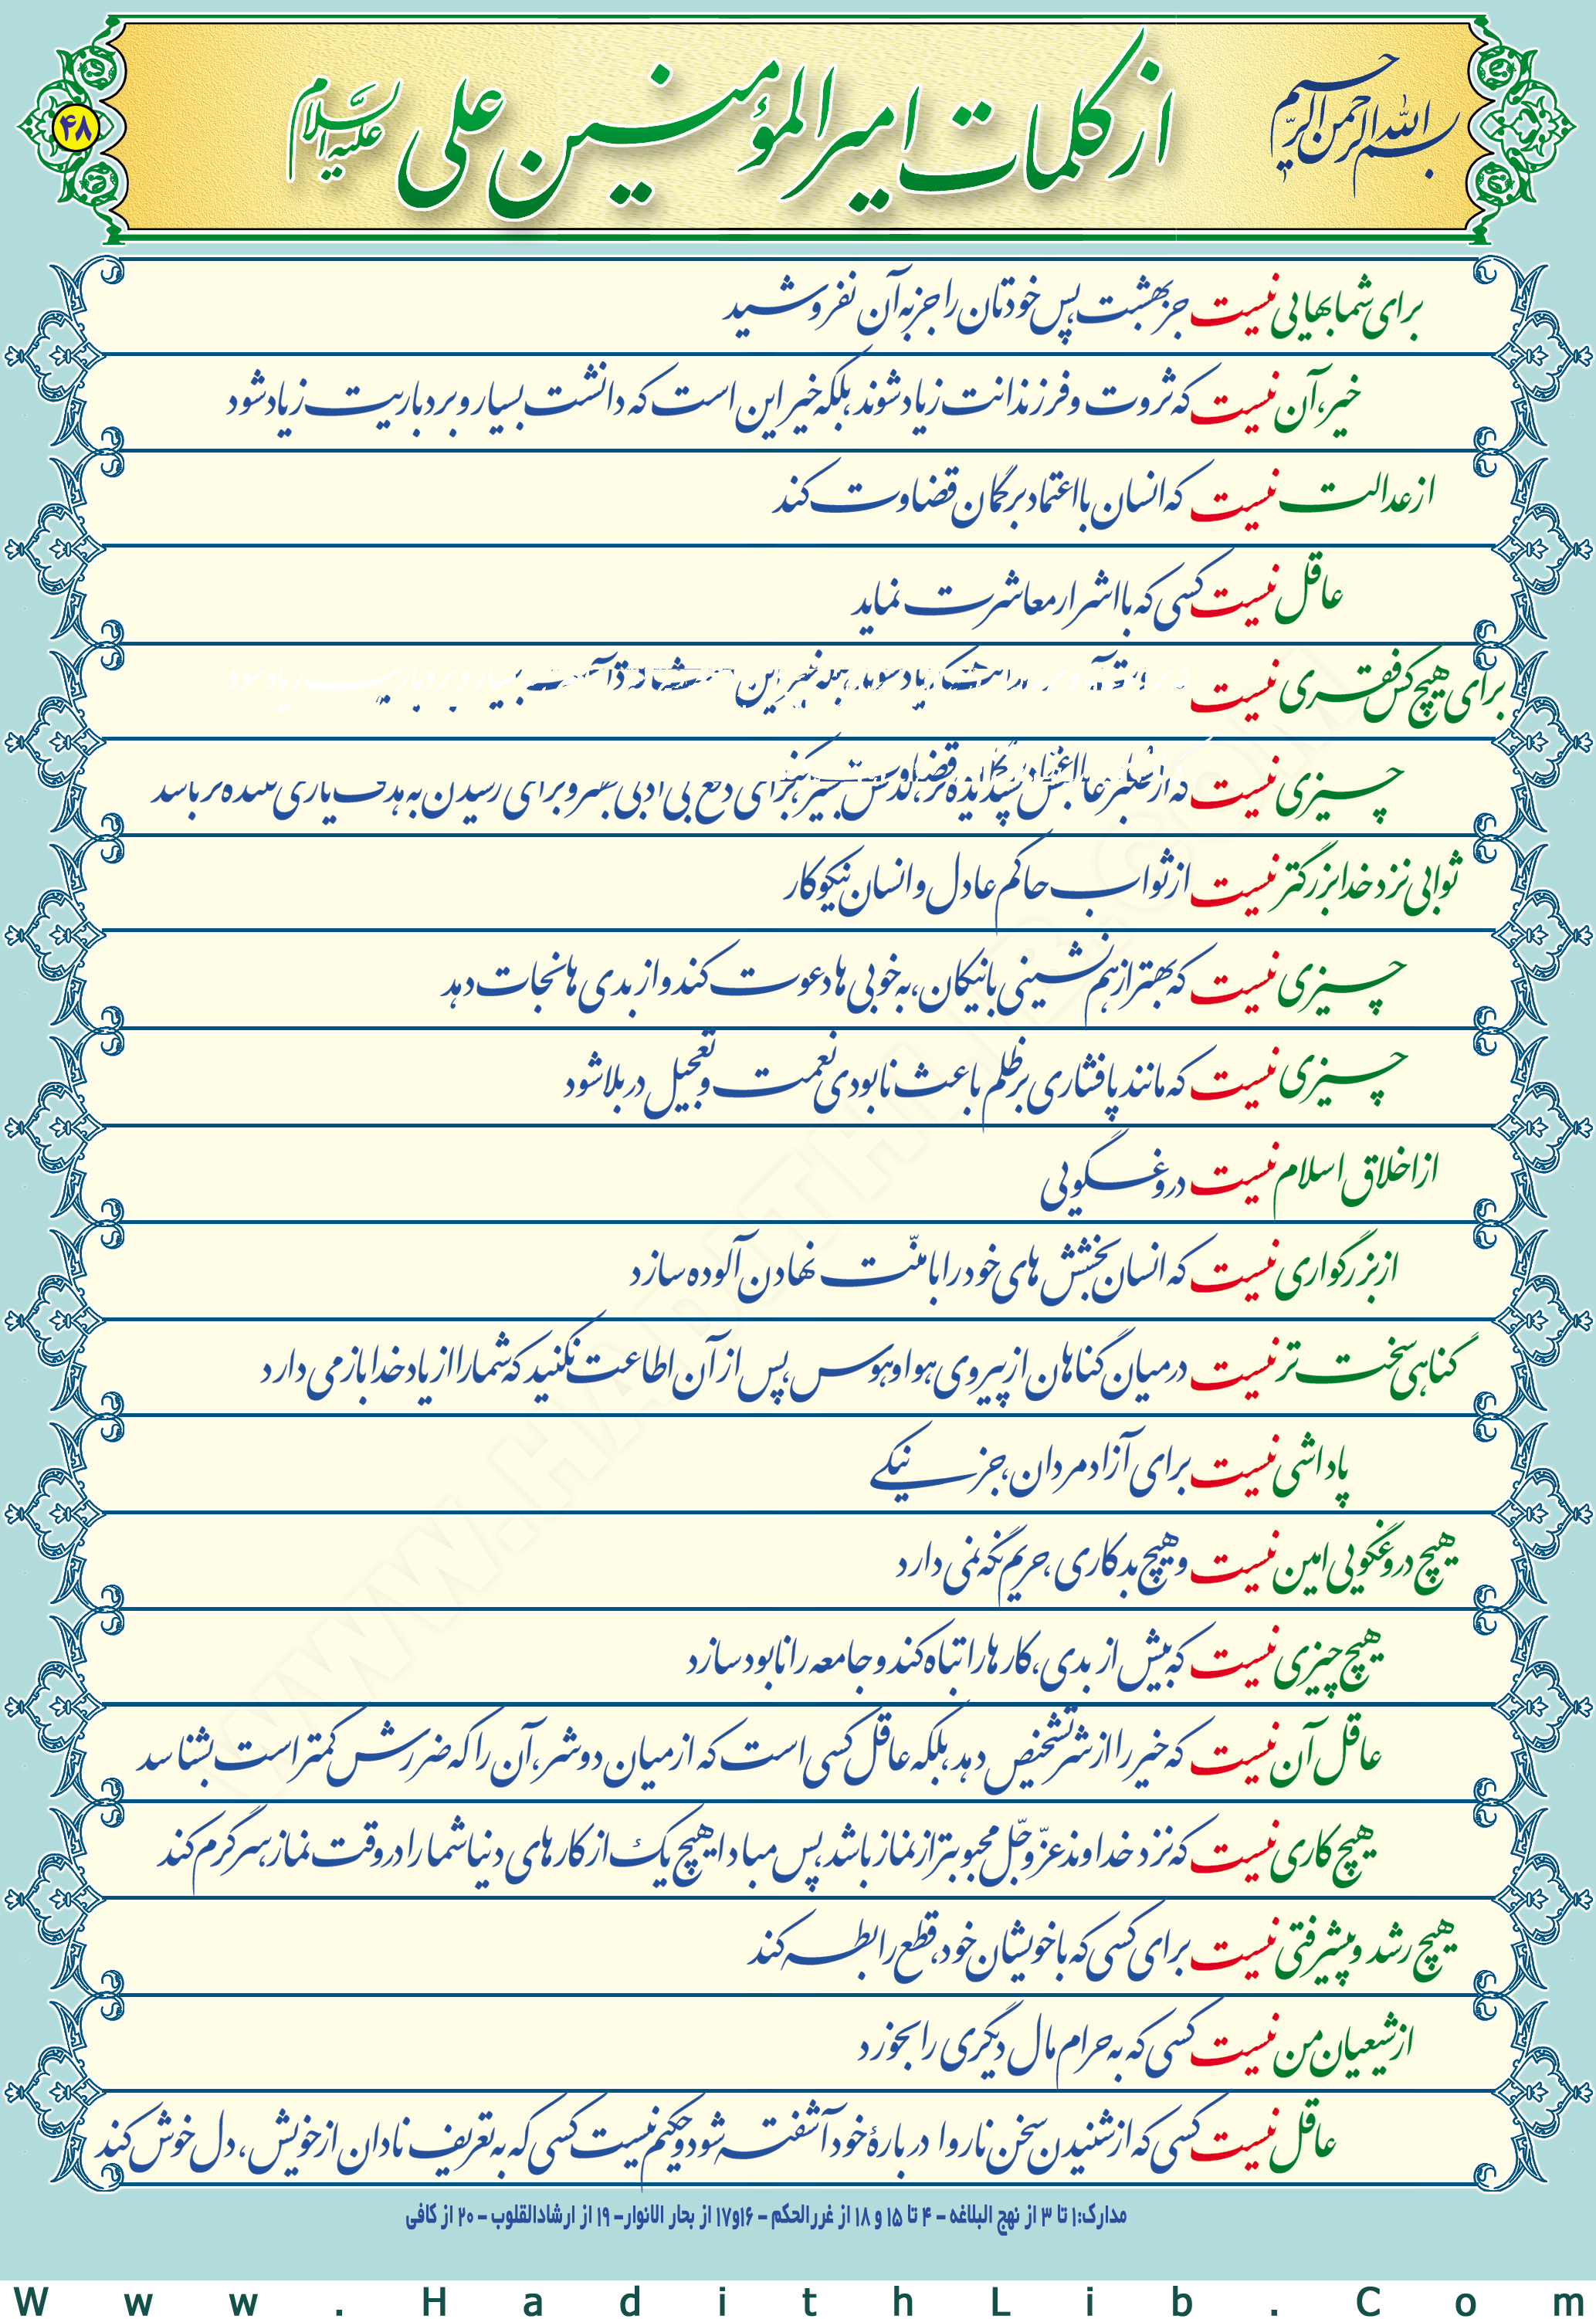 بسم الله الرحمن الرحیم
از کلمات امیرالمؤمنین علی علیه السلام
۴۸
برای شما بهایی نیست جز بهشت، پس خودتان را جز به آن نفروشید
خیر، آن نیست که ثروت و فرزندانت زیاد شوند، بلکه خیر این است که دانشت بسیار و بردباریت زیاد شود
از عدالت نیست که انسان با اعتماد بر گمان قضاوت کند
عاقل نیست کسی که با اشرار معاشرت نماید
برای هیچ کس فقری نیست
چیزی نیست که از صبر عاقبتش پسندیده‌تر، لذتش بی ادبی و برای رسیدن به هدف یاری کننده تر باشد
ثوابی نزد خدا بزرگتر نیست از ثواب حاکم عادل و انسان نیکوکار
چیزی نیست که بهتر از هم نشینی با نیکان، به خوبی ها دعوت کند و از بدی ها نجات دهد
چیزی نیست که مانند پافشاری بر ظلم باعث نابودی نعمت و تعجیل در بلا شود
از اخلاق اسلام نیست دروغگویی
از بزرگواری نیست که انسان بخشش های خود را با منّت نهادن آلوده سازد
گناهی سخت تر نیست در میان گناهان از پیروی هوا و هوس، پس از آن اطاعت نکنید که شما را از یاد خدا باز می دارد
پاداشی نیست برای آزادمردان، جز نیکی
هیچ دروغگویی امین نیست و هیچ بدکاری، حریم نگه نمی دارد
هیچ چیزی نیست که بیش از بدی، کارها را تباه کند و جامعه را نابود سازد
عاقل آن نیست که خیر را از شر تشخیص دهد، بلکه عاقل کسی است که از میان دو شر، آن را که ضررش کمتر است بشناسد
هیچ کاری نیست که نزد خداوند عزّ و جلّ محبوبتر از نماز باشد، پس مبادا هیچ یک از کارهای دنیا شما را در وقت نماز، سرگرم کند
هیچ رشد و پیشرفتی نیست برای کسی که با خویشان خود، قطع رابطه کند
از شیعیان من نیست کسی که به حرام مال دیگری را بخورد
عاقل نیست کسی که از شنیدن سخن ناروا درباره‌ٔ خود آشفته شود و حکیم نیست کسی که به تعریف نادان از خویش، دل خوش کند
مدارک:۱ تا ۳ از نهج البلاغه – ۴ تا ۱۵ و ۱۸ از غررالحکم – ۱۶و۱۷ از بحار الانوار– ۱۹ از ارشادالقلوب – ۲۰ از کافی
Www.HadithLib.Com